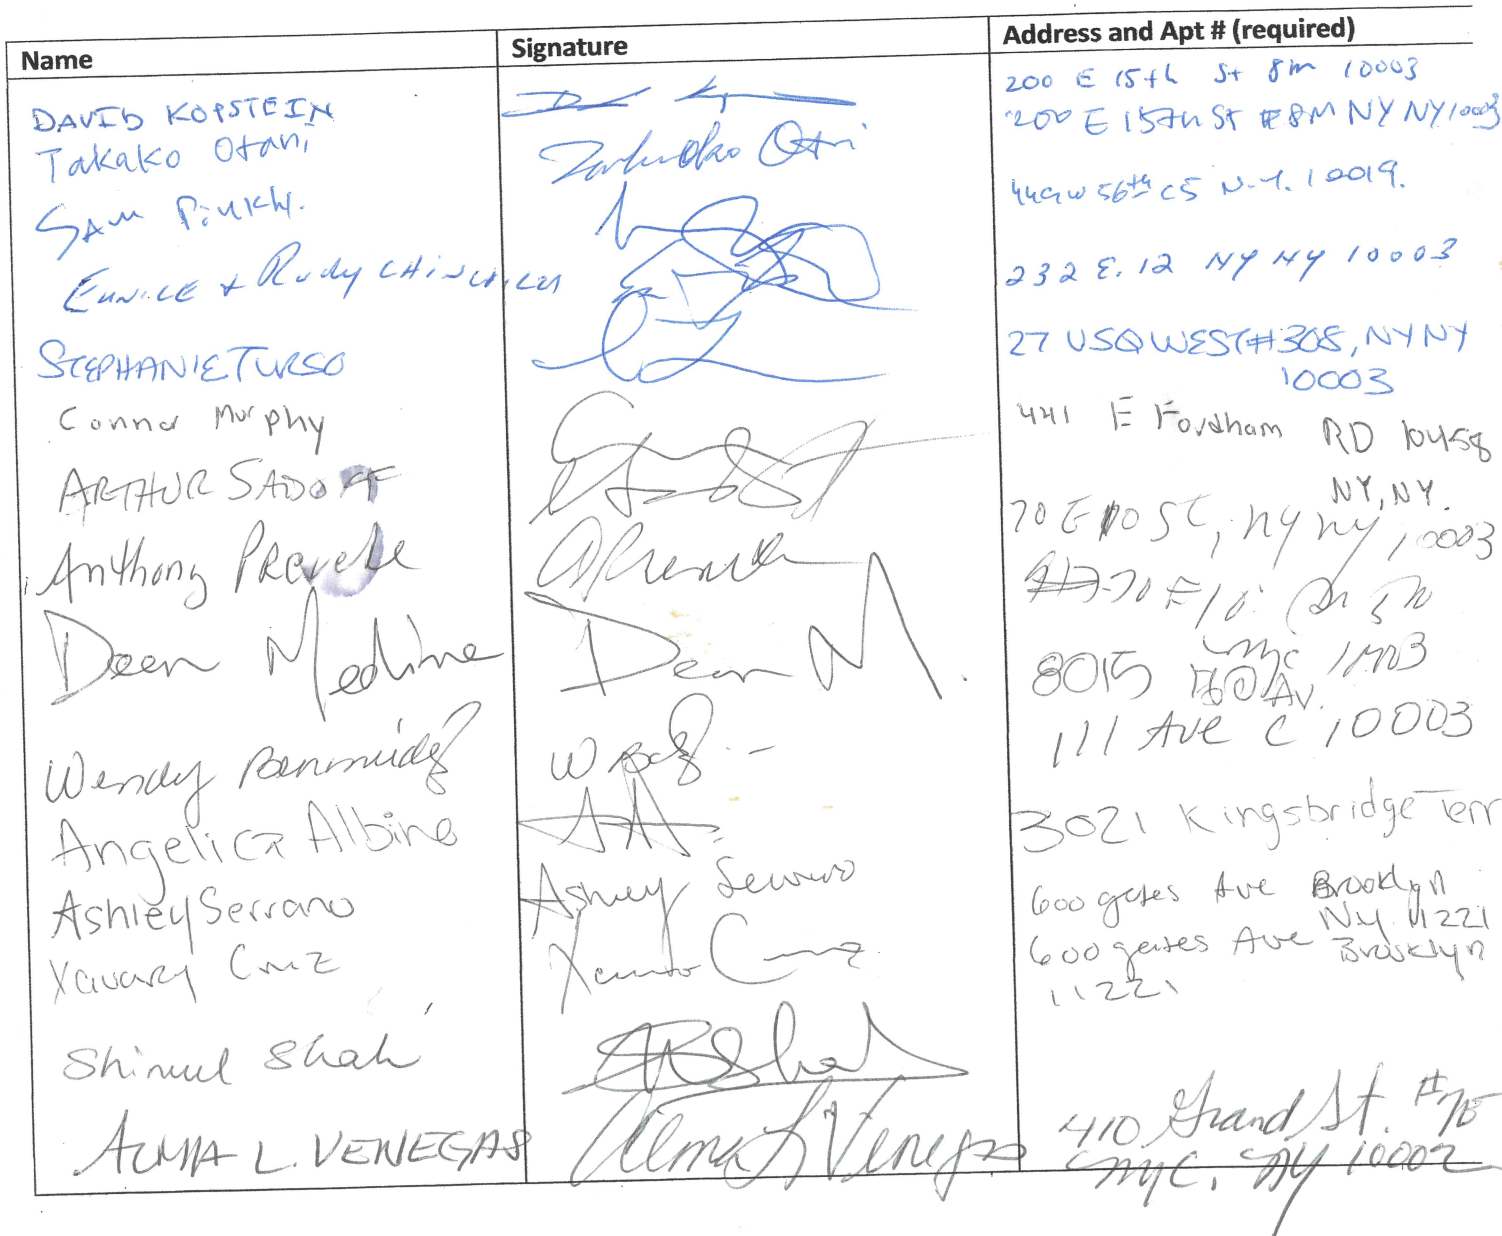 Name Signature Address and Apt # (required)
DAVID KOPSTEIN 200 E 15th St 8m 10003
Takako Otani Otani 200 E 15th St #8M NY NY 10003
SAM 449 W 56th C5 N.Y. 10019.
EUNICE + Rudy 232 E. 12 NY NY 10003
STEPHANIE TURSO 27 USQ WEST #308, NY NY
10003
Connor Murphy 441 E Fordham RD 10458
NY, NY.
ARTHUR SADOFF 70 E 10 ST, NY NY, 10003
Anthony 70 E 10
Deen Medina Dean M. 8015
Av.
Wendy 111 Ave C 10003
Angelica Albino 3021 Kingsbridge Terr
Ashley Serrano Ashley 600 gates Ave Brooklyn
NY 11221
Cruz 600 gates Ave Brooklyn
11221
Shimul Shah Shah
ALMA L. VENEGAS Alma L Venegas 410 Grand St.
NYC, NY 10002